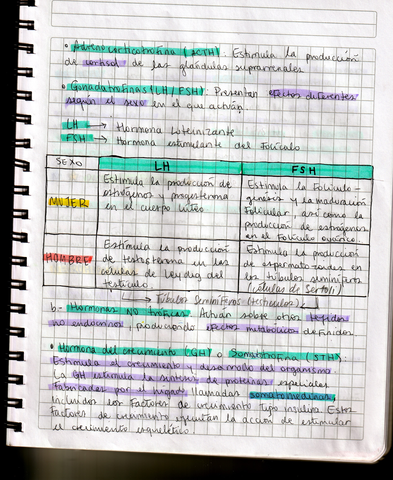 • Adrenocorticotrofina (ACTH): Estimula la producción
de cortisol de las glándulas suprarrenales
• Gonadotrofinas (LH/FSH): Presentan efectos diferentes
según el sexo en el que actúan.
LH → Hormona Luteinizante
FSH → Hormona estimulante del Folículo
SEXO LH FSH
MUJER
Estimula la producción de
estrógenos y progesterona
en el cuerpo lúteo
Estimula la Foliculo-
génesis y la maduración
Folicular, así como la
producción de estrógenos
en el Folículo
HOMBRE
Estimula la producción
de testosterona en las
células de Leydig del
testículo.
Estimula la producción
de espermatozoides en
los túbulos seminíferos
(células de Sertoli)
→ Túbulos Seminíferos (testículos)
b.- Hormonas NO tróficas: Actúan sobre otros tejidos
no endocrinos, produciendo efectos metabólicos definidos
• Hormona del crecimiento (GH) o Somatotrofina (STH):
Estimula el crecimiento y desarrollo del organismo
La GH estimula la síntesis de proteínas especiales
fabricadas por el hígado llamadas somatomedinas,
incluidos los Factores de crecimiento tipo insulina. Estos
Factores de crecimiento ejecutan la acción de estimular
el crecimiento esquelético.